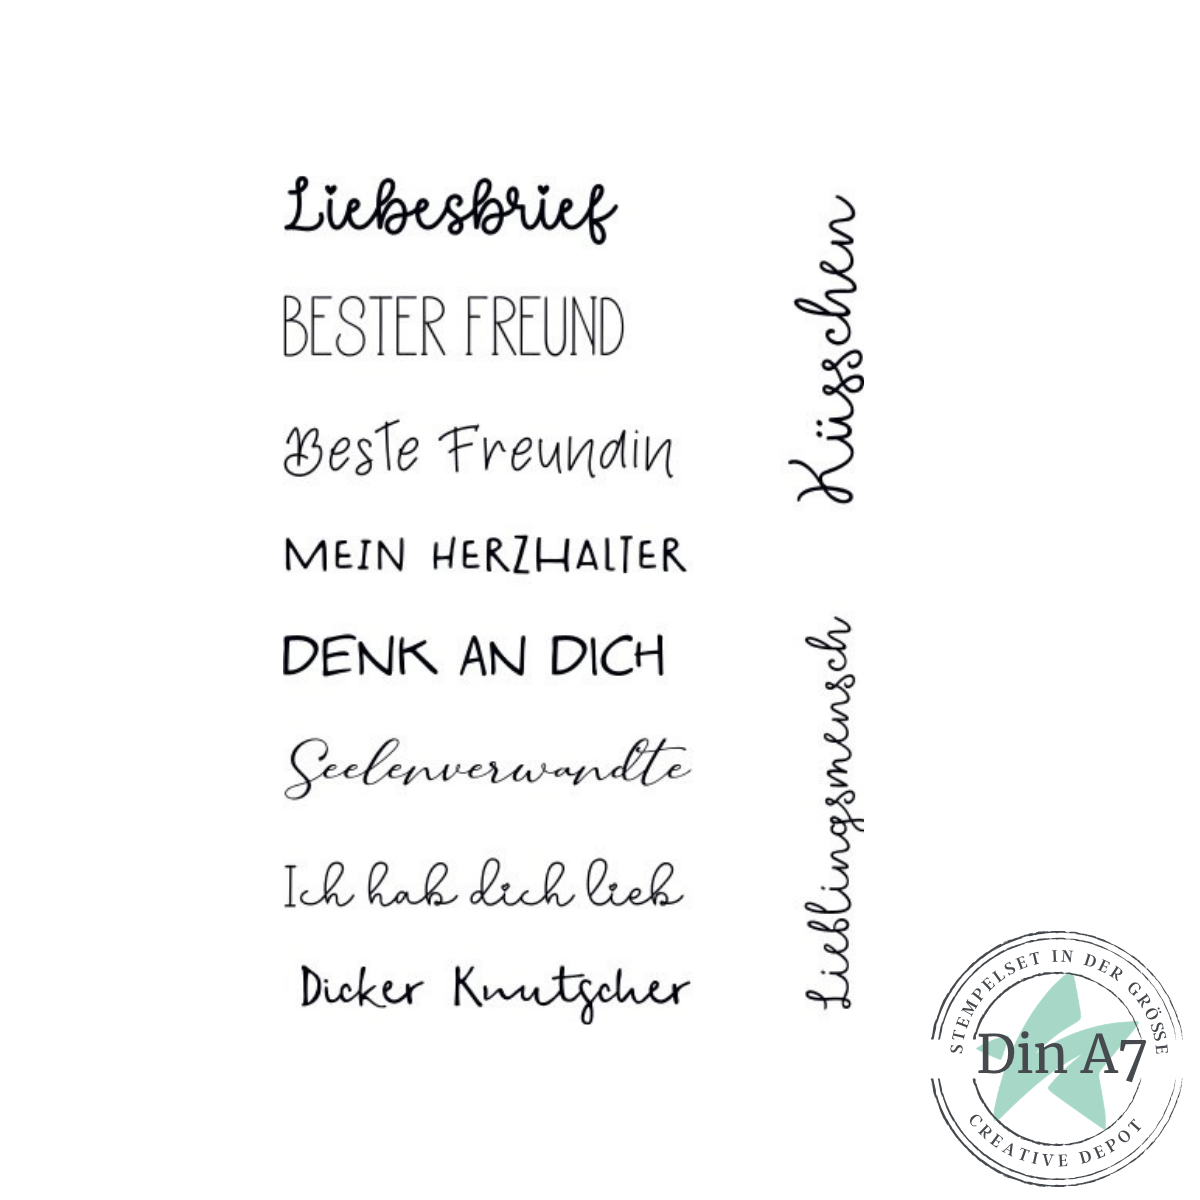 Liebesbrief
BESTER FREUND
Beste Freundin
MEIN HERZHALTER
DENK AN DICH
Seelenverwandte
Ich hab dich lieb
Dicker Knutscher
Küsschen
Lieblingsmensch
STEMPELSET IN DER GRÖSSE
Din A7
CREATIVE DEPOT